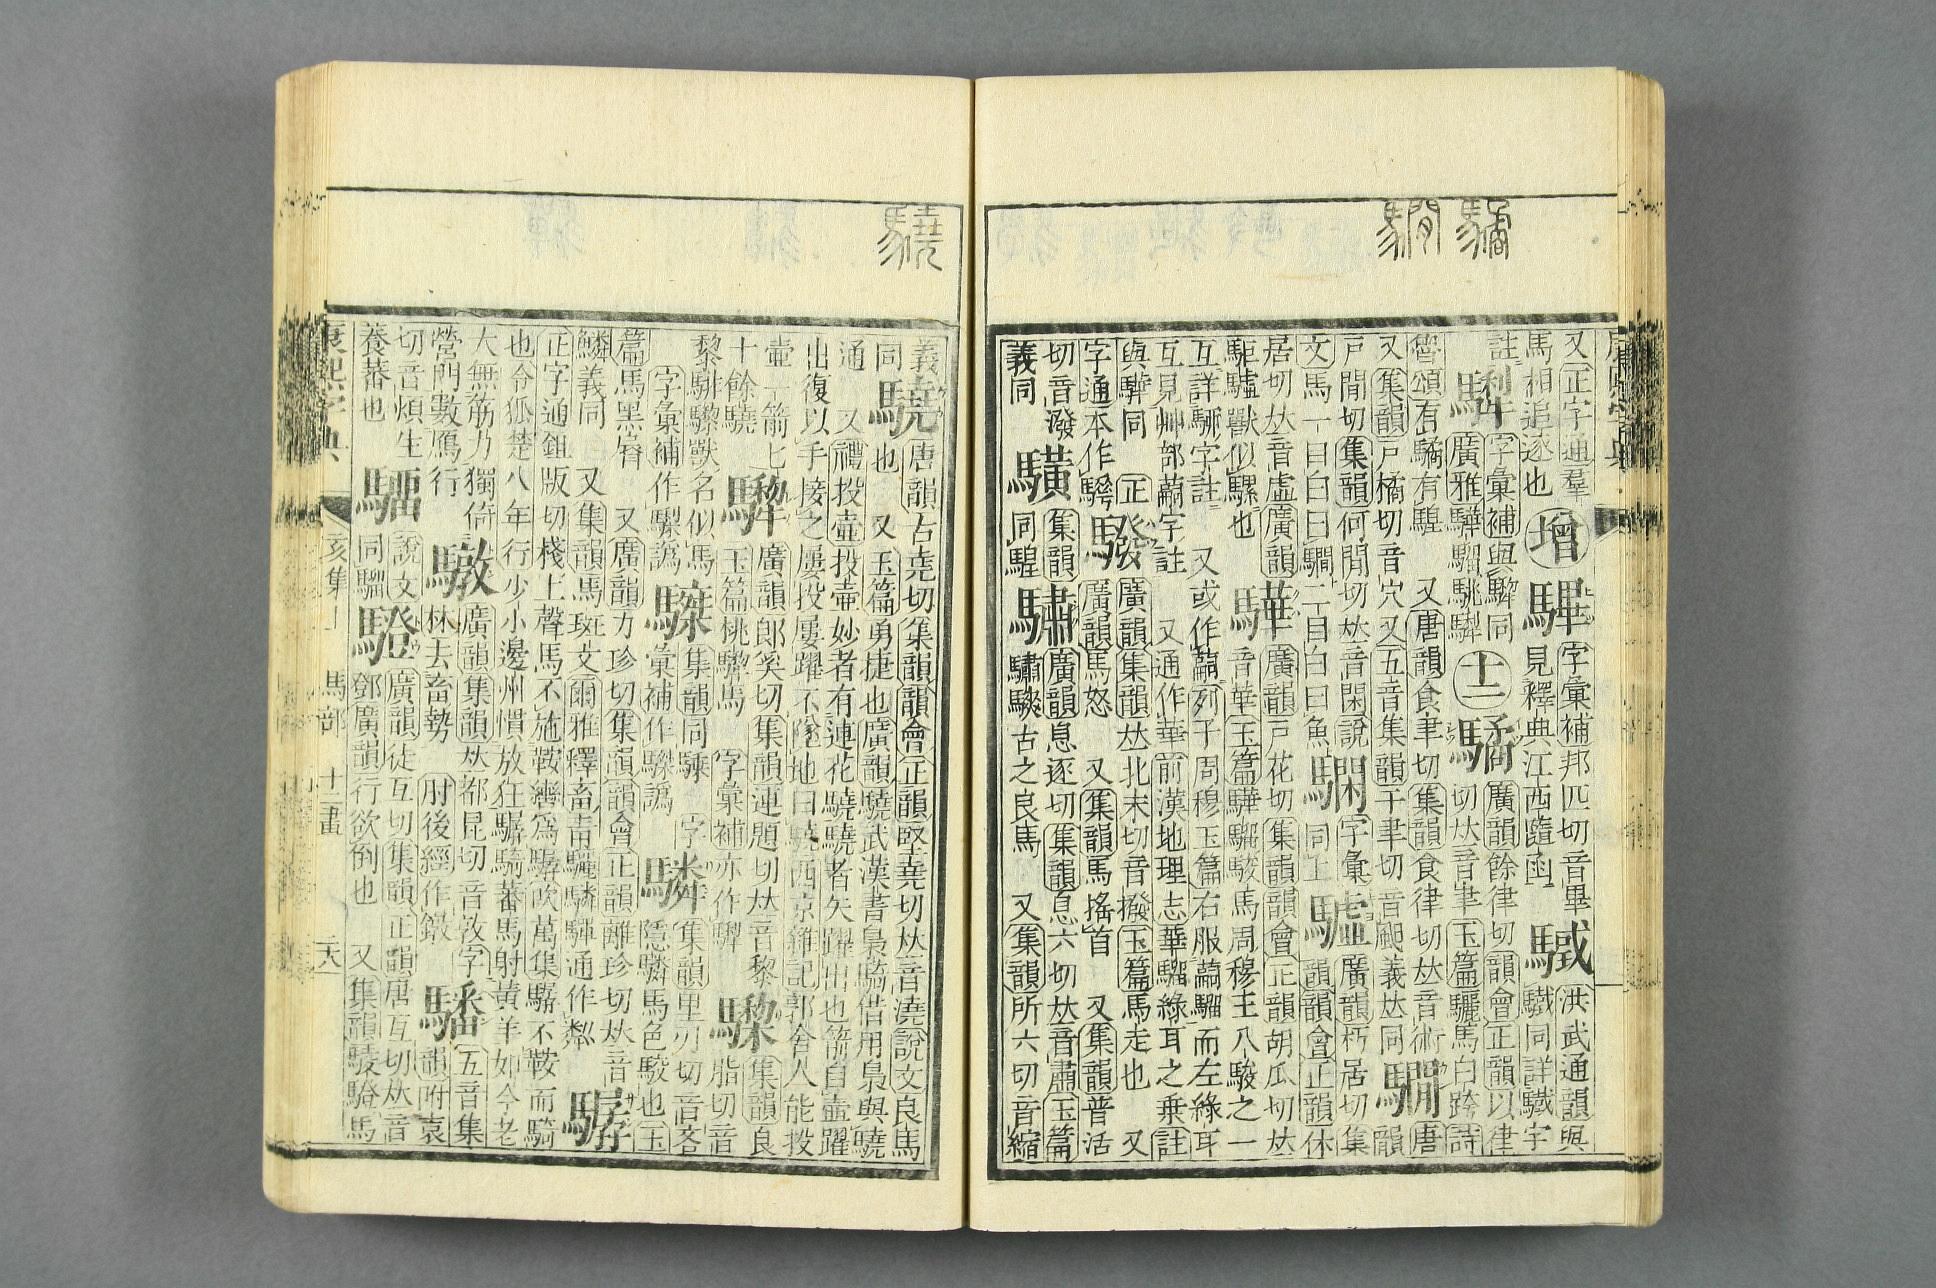 又正字通羣 增 驆 字彙補邦匹切音畢 洪武通韻與
馬相追逐也 見釋典江西隨函 同詳驖字
註 字彙補與 同 十二 驈 廣韻餘律切韻會正韻以律
廣雅驊騮 切𠀤音聿玉篇驪馬白跨詩
魯頌有驈有騜 又唐韻食聿切集韻食律切𠀤音術 瞯 唐
又集韻戸橘切音穴 又五音集韻于聿切音颶義𠀤同 韻
戸閒切集韻何閒切𠀤音閑說 字彙 驉 廣韻朽居切集
文馬一目白曰瞯二目白曰魚 同上 韻韻會正韻休
居切𠀤音虛廣韻 驊 廣韻戸花切集韻韻會正韻胡瓜切𠀤
駏驉獸似騾也 音華玉篇驊騮駿馬周穆王八駿之一
互詳 字註 又或作蘤列子周穆王篇右服蘤騮而左綠耳
互見艸部蘤字註 又通作華前漢地理志華騮綠耳之乗註
與驊同 正 驋 廣韻集韻𠀤北末切音撥玉篇馬走也 又
字通本作 廣韻馬怒 又集韻馬搖首 又集韻普活
切音潑 䮲 集韻 驌 廣韻息逐切集韻息六切𠀤音肅玉篇
義同 同騜 驌騻古之良馬 又集韻所六切音縮
義 驍 唐韻古堯切集韻韻會正韻堅堯切𠀤音澆說文良馬
同 也 又玉篇勇捷也廣韻驍武漢書梟騎借用梟與驍
通 又禮投壷投壷妙者有連花驍驍者矢躍出也箭自壷躍
出復以手接之屢投屢躍不墜地曰驍西京雜記郭舍人能投
壷一箭七 廣韻郎奚切集韻連題切𠀤音黎 集韻良
十餘驍 玉篇桃 馬 字彙補亦作 脂切音
黎 獸名似馬 集韻同騬 字 驎 集韻里刃切音吝
字彙補作 譌 彙補作 譌 隱驎馬色駁也玉
篇馬黑脣 又廣韻力珍切集韻韻會正韻離珍切𠀤音 驏
鱗義同 又集韻馬斑文爾雅釋畜靑驪驎驒通作粼
正字通鉏版切棧上聲馬不施鞍轡爲驏吹萬集驏不鞍而騎
也令狐楚八年行少小邊州慣放狂驏騎蕃馬射黃羊如今老
大無筋力獨倚 驐 廣韻集韻𠀤都昆切音敦字 䮳 五音集
營門數鴈行 林去畜勢 肘後經作 韻附袁
切音煩生 驑 說文 驓 廣韻徒亙切集韻正韻唐亙切𠀤音
養蕃也 同騮 鄧廣韻行欲倒也 又集韻 馬
康熙字典 亥集下 馬部 十二畫